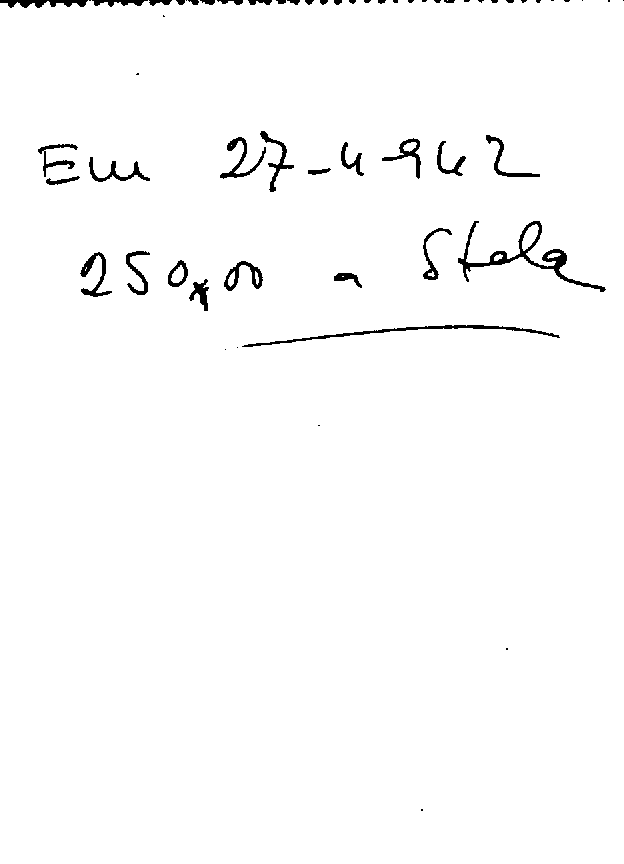 Em 27-4-942
250,00 a Stela